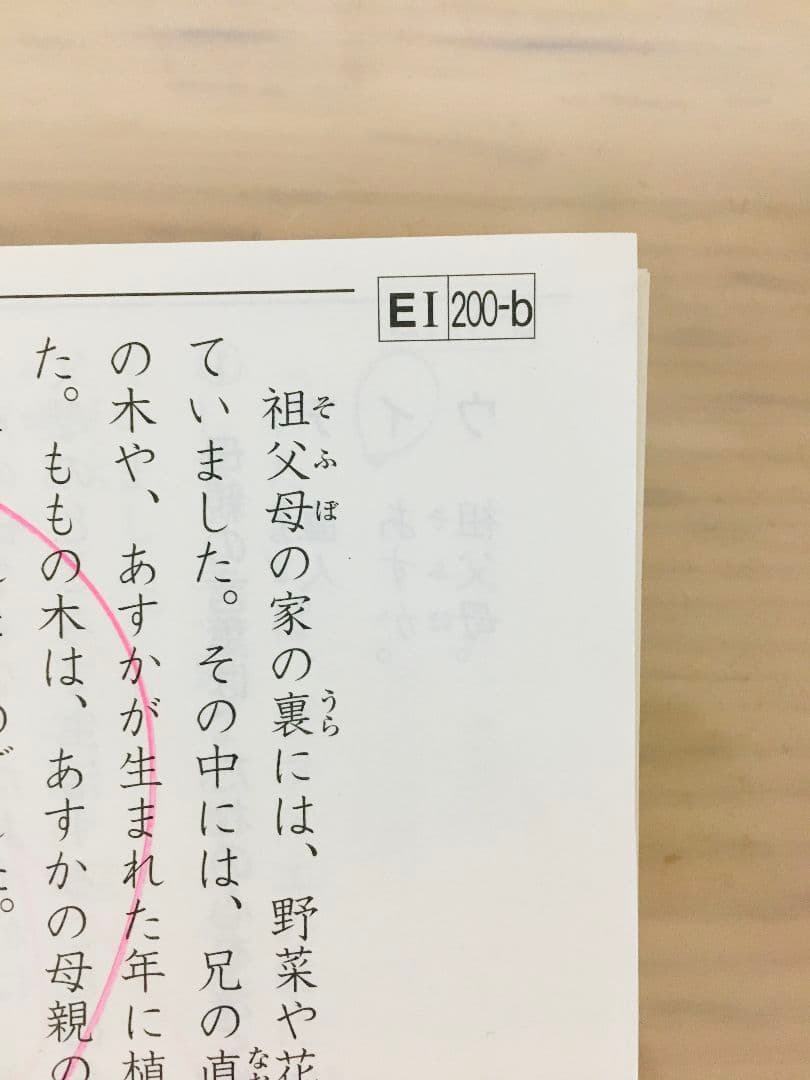 EI 200-b
祖父母の家の裏には、野菜や花
そふぼ
うら
ていました。その中には、兄の直
なお
の木や、あすかが生まれた年に植
た。ももの木は、あすかの母親の